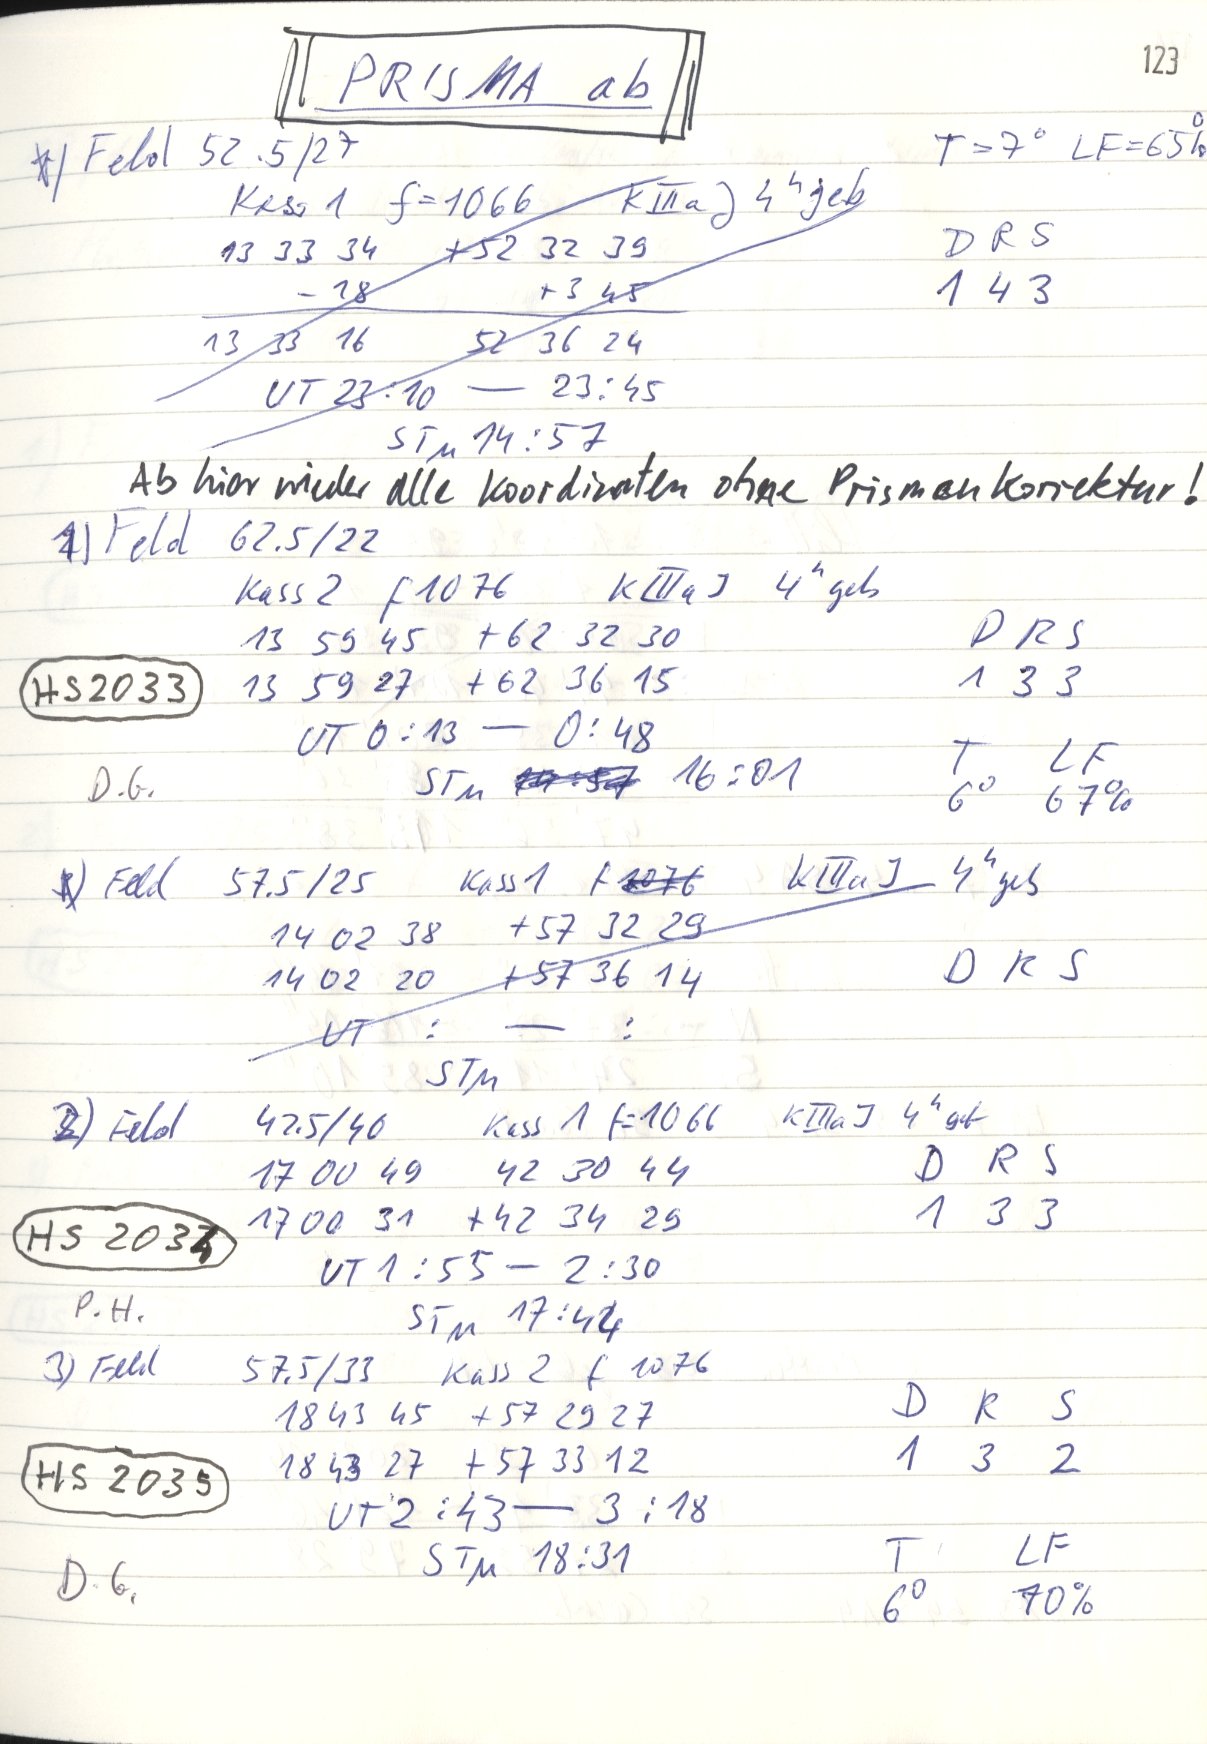 123
PRISMA ab
1) Feld 52.5/27 T=7° LF=65%
Kass 1 f=1066 KIIIaJ 4h geb
13 33 34 +52 32 39 D R S
-18 +3 45 1 4 3
13 33 16 52 36 24
UT 23:10 — 23:45
STM 14:57
Ab hier wieder alle Koordinaten ohne Prismenkorrektur!
1) Feld 62.5/22
Kass 2 f 1076 KIIIaJ 4h geb
13 59 45 +62 32 30 D R S
HS2033 13 59 27 +62 36 15 1 3 3
UT 0:13 — 0:48
D.G. STM 14:57 16:01 T LF
6° 67%
Feld 57.5/25 Kass 1 f 1076 KIIIaJ 4h geb
14 02 38 +57 32 29
14 02 20 +57 36 14 D R S
UT : — :
STM
2) Feld 42.5/40 Kass 1 f=1066 KIIIaJ 4h geb
17 00 49 42 30 44 D R S
HS 2034 17 00 31 +42 34 29 1 3 3
UT 1:55 — 2:30
P.H. STM 17:44
3) Feld 57.5/33 Kass 2 f 1076
18 43 45 +57 29 27 D R S
HS 2035 18 43 27 +57 33 12 1 3 2
UT 2:43 — 3:18
STM 18:31 T LF
D.G. 6° 70%